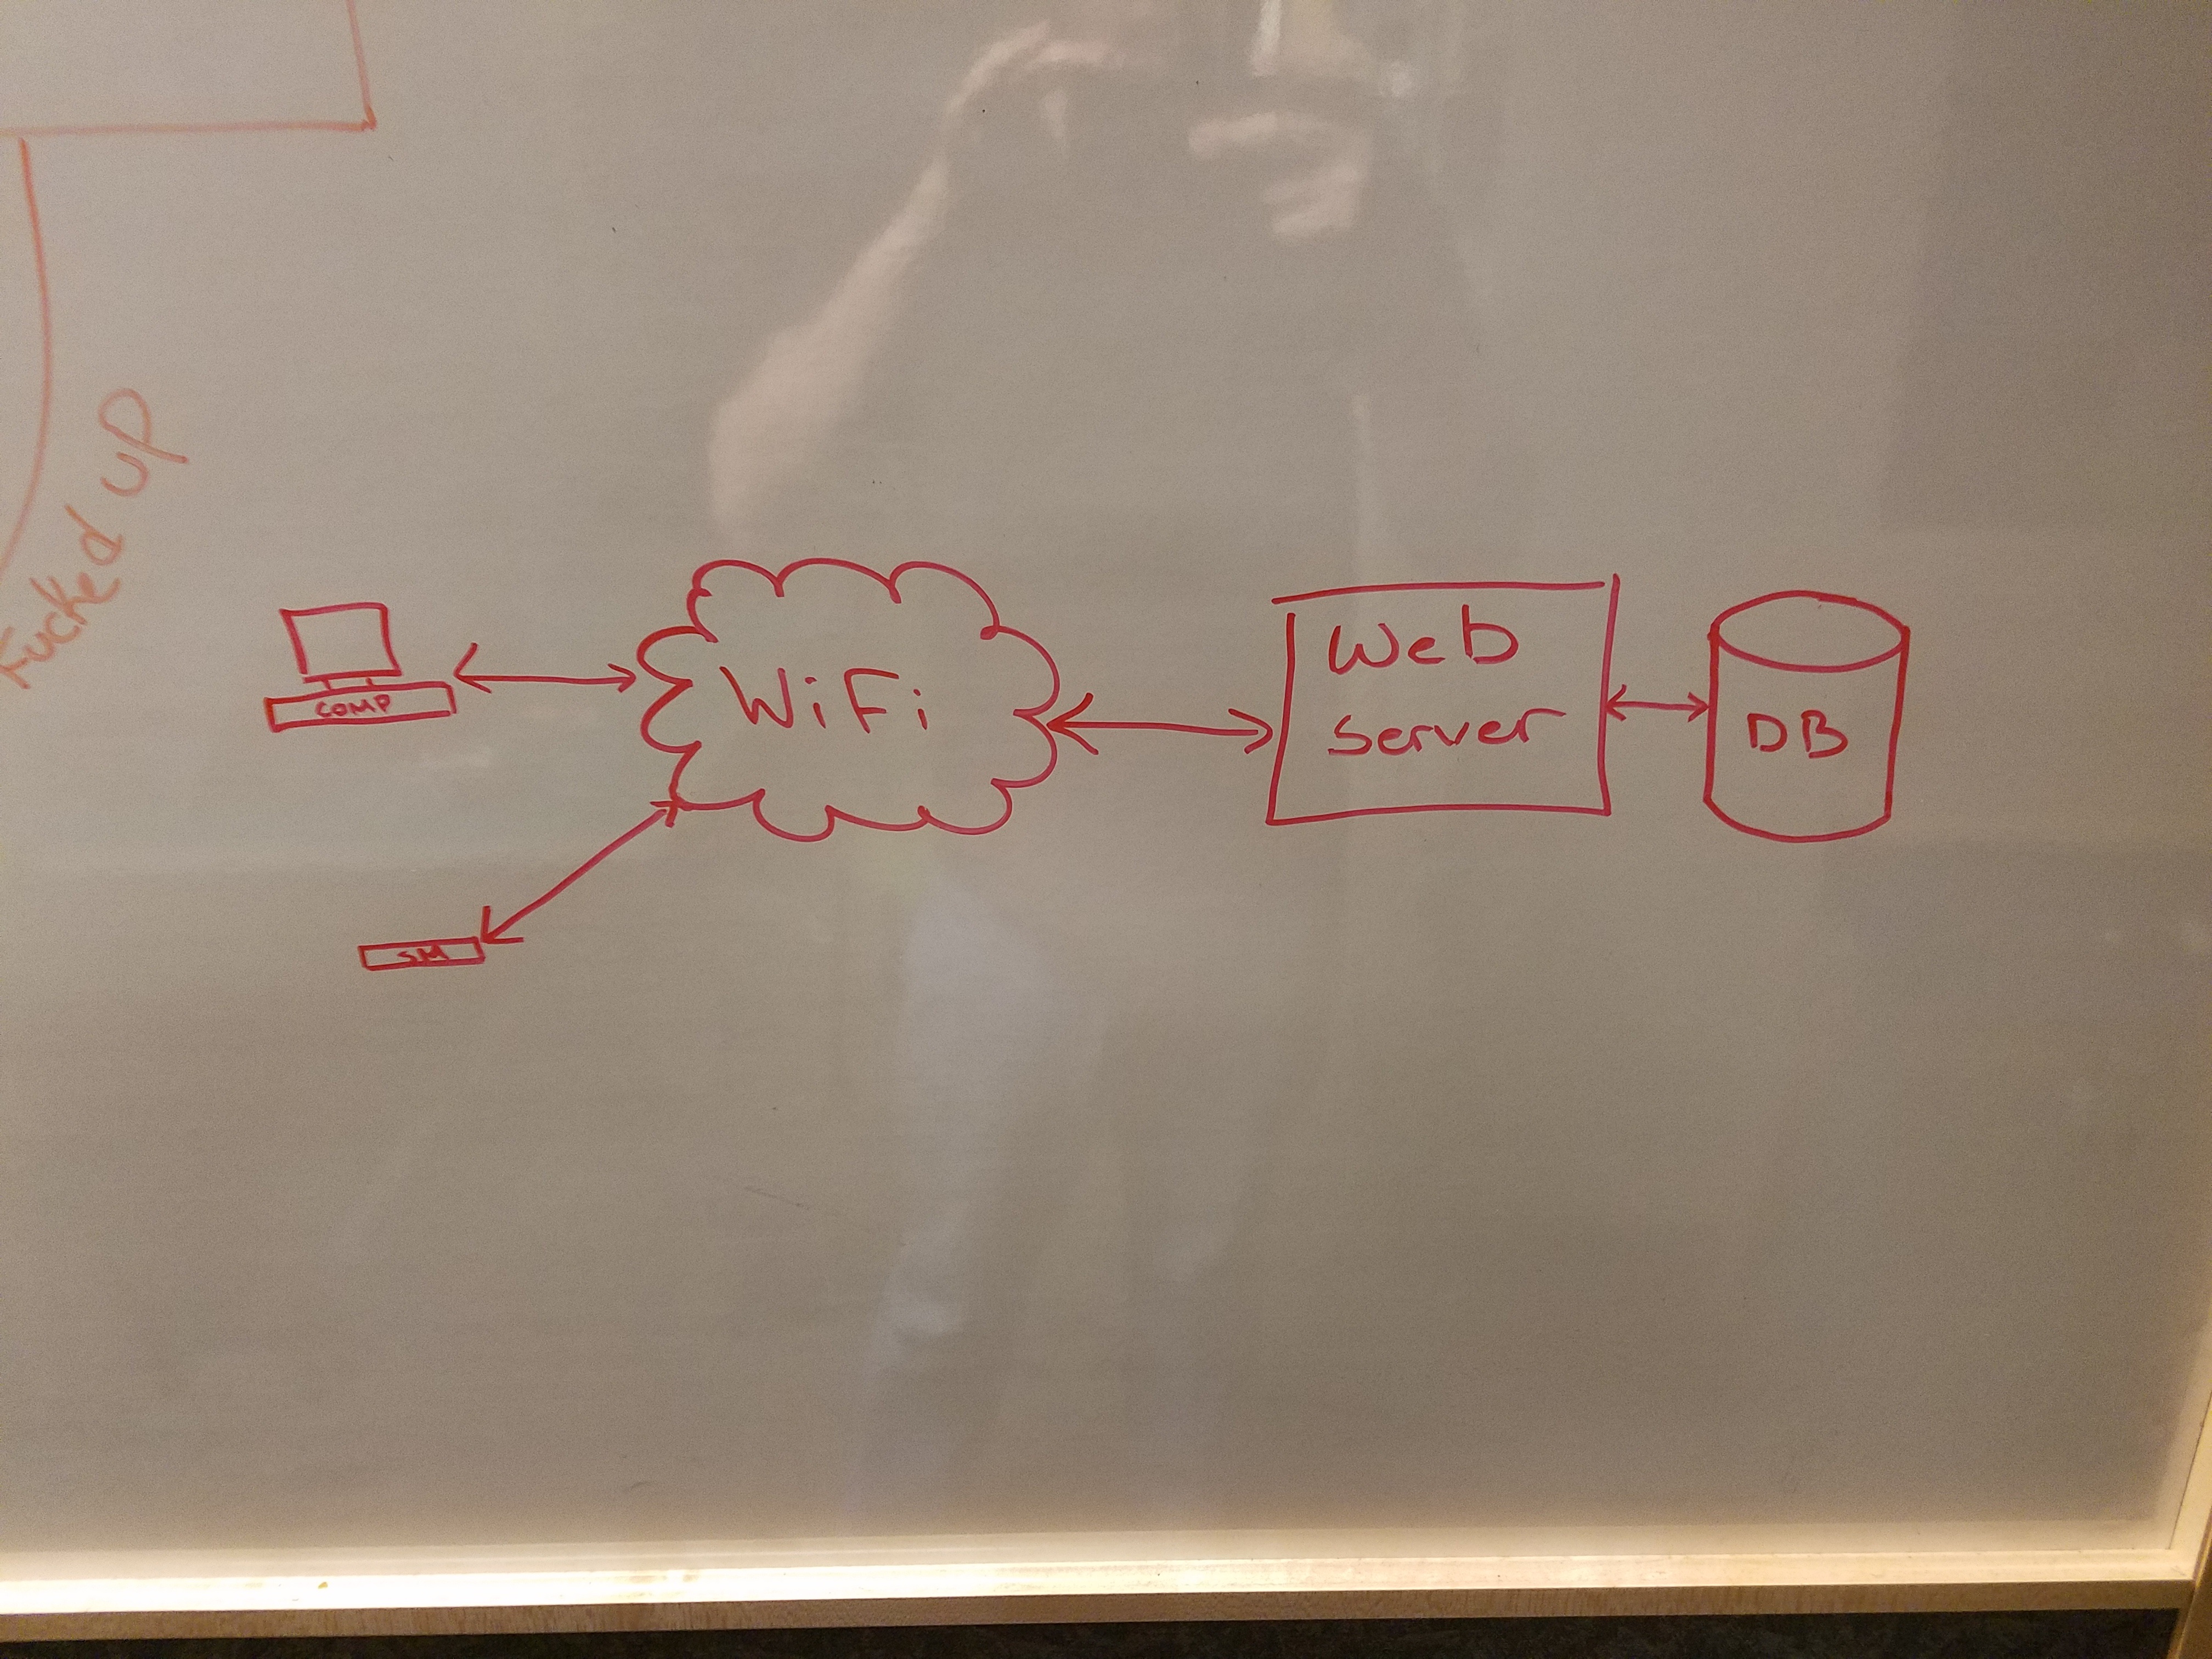 Fucked up
COMP
WiFi
Web
Server
DB
SM